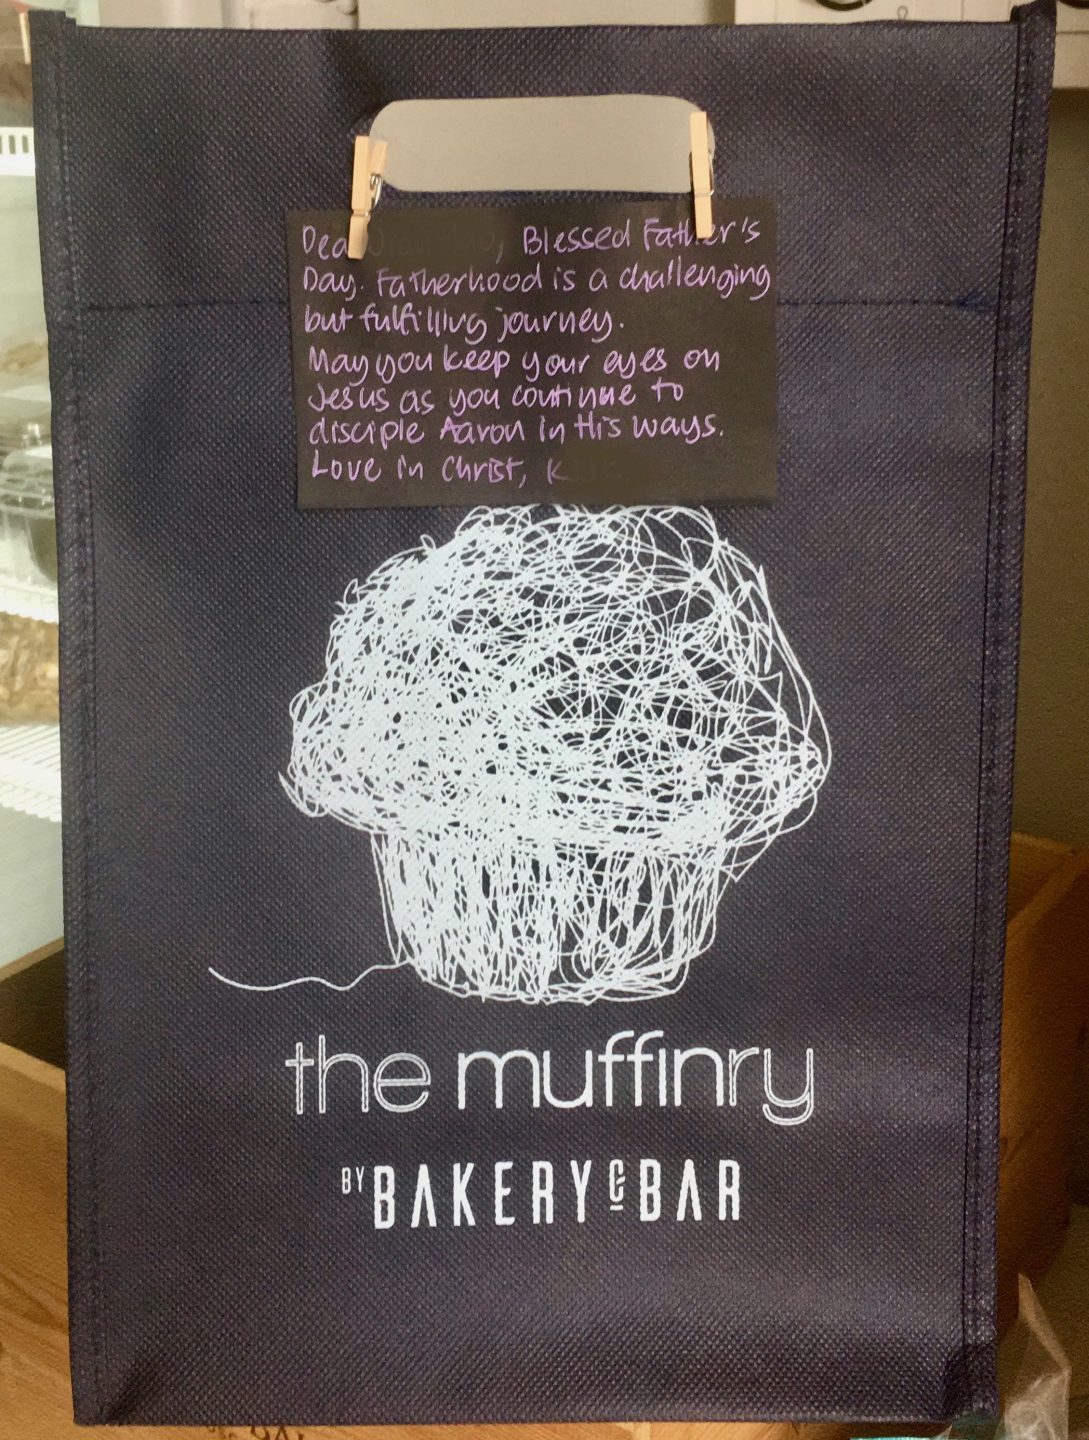 Dear, Blessed Father's
Day. Fatherhood is a challenging
but fulfilling journey.
May you keep your eyes on
Jesus as you continue to
disciple Aaron in His ways.
Love in Christ, K
the muffinry
BY BAKERY & BAR